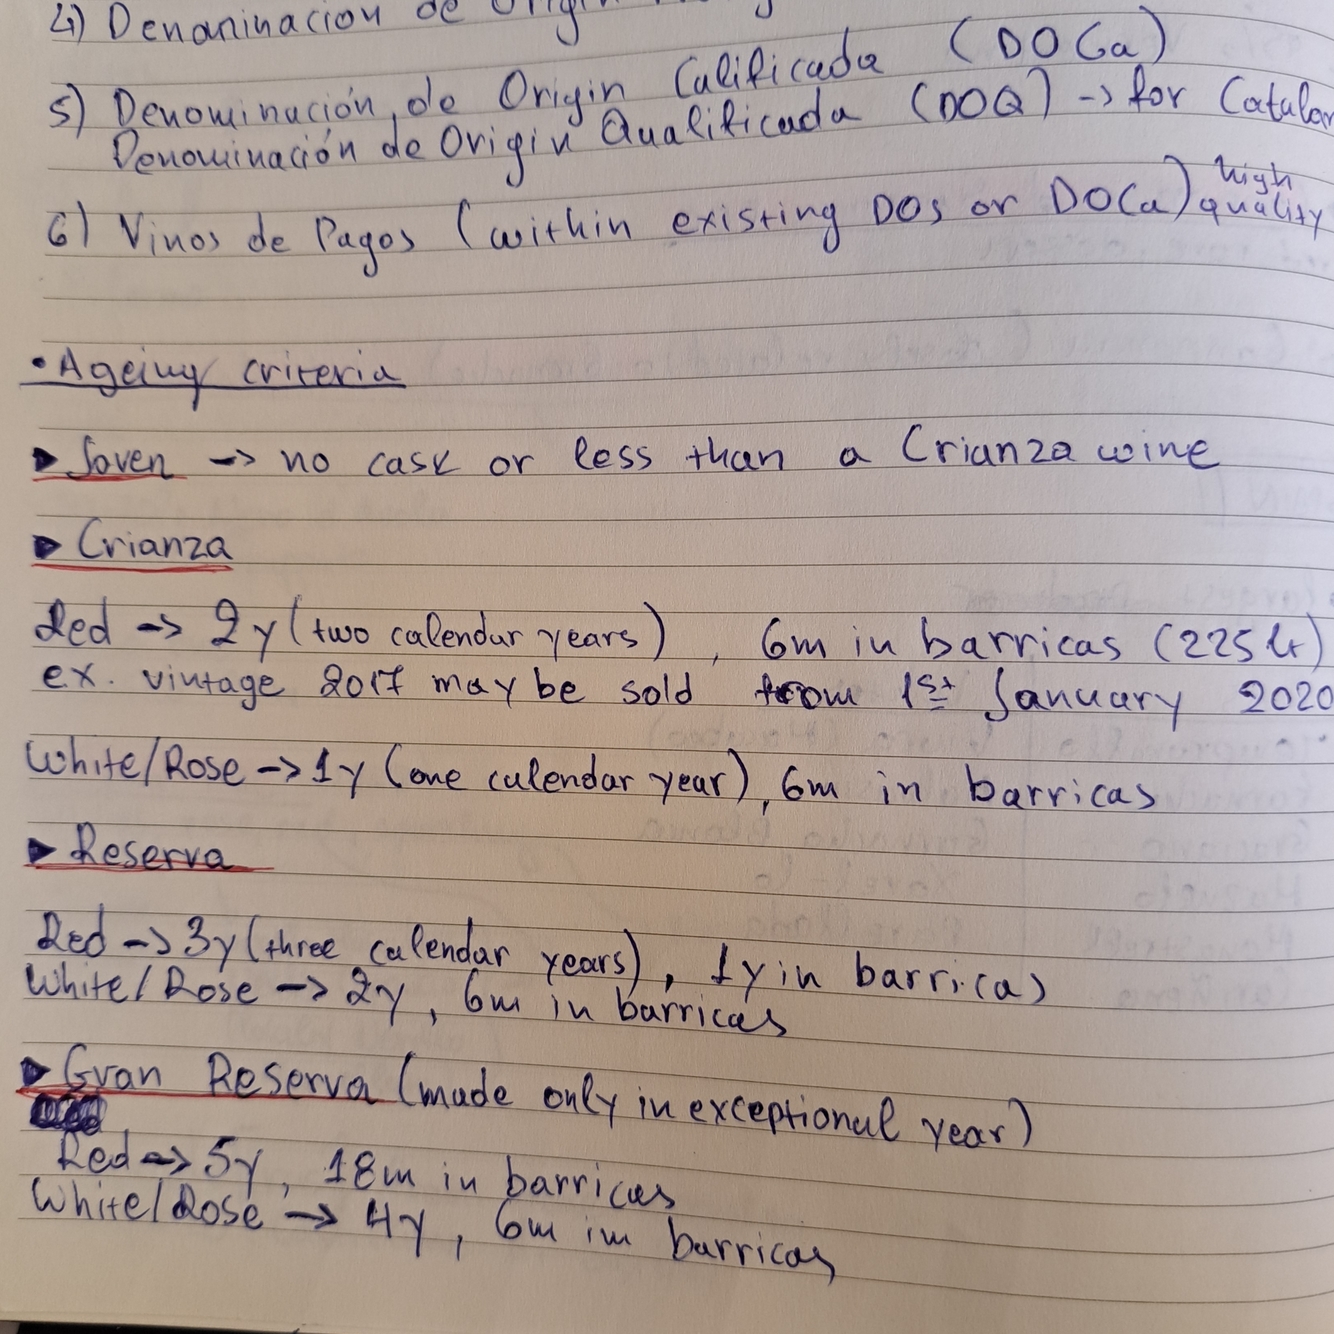 4) Denaninacion de Origin
5) Denominación de Origin Calificada (DOCa)
Denominación de Origin Qualificada (DOQ) -> for Catalon
6) Vinos de Pagos (within existing DOs or DOCa) high quality
• Ageing criteria
▶ Joven -> no cask or less than a Crianza wine
▶ Crianza
Red -> 2y (two calendar years), 6m in barricas (225 lt)
ex. vintage 2017 may be sold from 1st January 2020
White/Rose -> 1y (one calendar year), 6m in barricas
▶ Reserva
Red -> 3y (three calendar years), 1y in barricas
White/Rose -> 2y, 6m in barricas
▶ Gran Reserva (made only in exceptional year)
Red -> 5y, 18m in barricas
White/Rose -> 4y, 6m im barricas